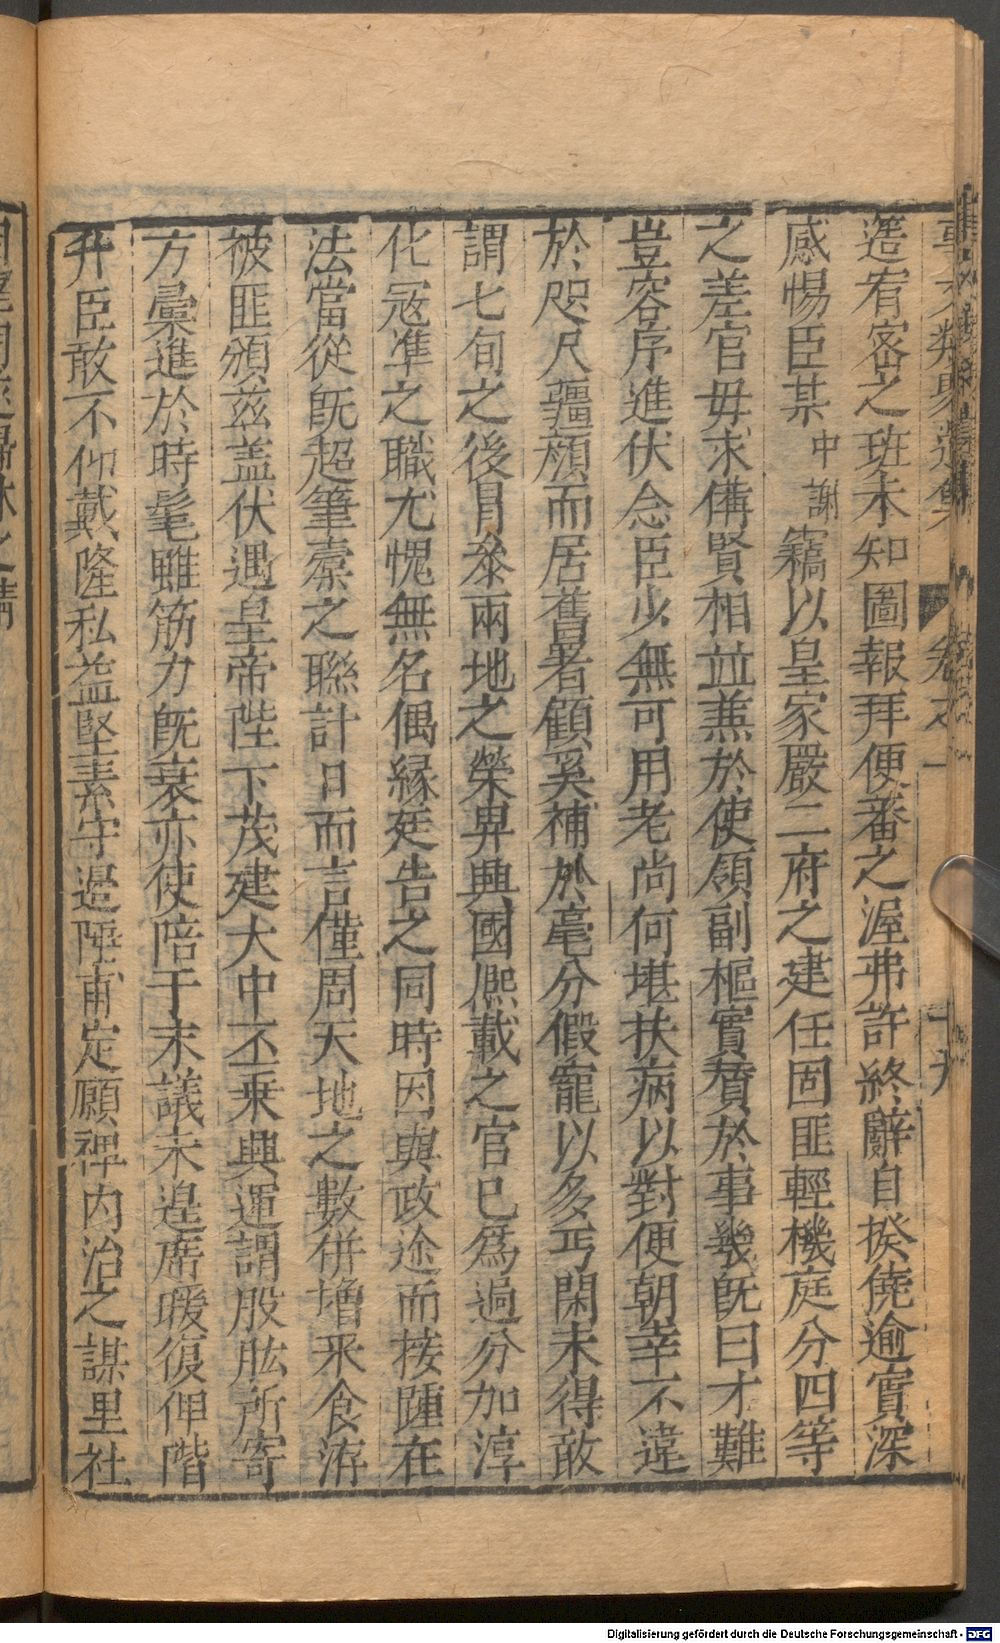 造宥宻之班未知圖報拜便蕃之渥弗許終辭自揆僥逾實深
感惕臣某中謝竊以皇家嚴二府之建任固匪輕機庭分四等
之差官毋求備賢相並薫於使領副樞實賛於事幾旣曰才難
豈容序進伏念臣少無可用老尚何堪扶病以對便朝幸不違
於咫尺疆顔而居舊署顧奚補於毫分假寵以多丐閑未得敢
謂七旬之後肎叅兩地之榮畀興國熈載之官巳爲過分加淳
化冦準之職尤愧無名偶縁廷告之同時因與政途而接踵在
法當從旣超筆槖之聯計日而言僅周天地之數併增釆食洊
被匪頒兹盖伏遇皇帝陛下茂建大中丕乗興運謂股肱所寄
方彙進於時髦雖筋力旣衰亦使陪于末議未遑席暖復俾階
升臣敢不仰戴隆私益堅素守邉陲甫定願裨内治之謀里社
卷之一
十九
Digitalisierung gefördert durch die Deutsche Forschungsgemeinschaft - DFG